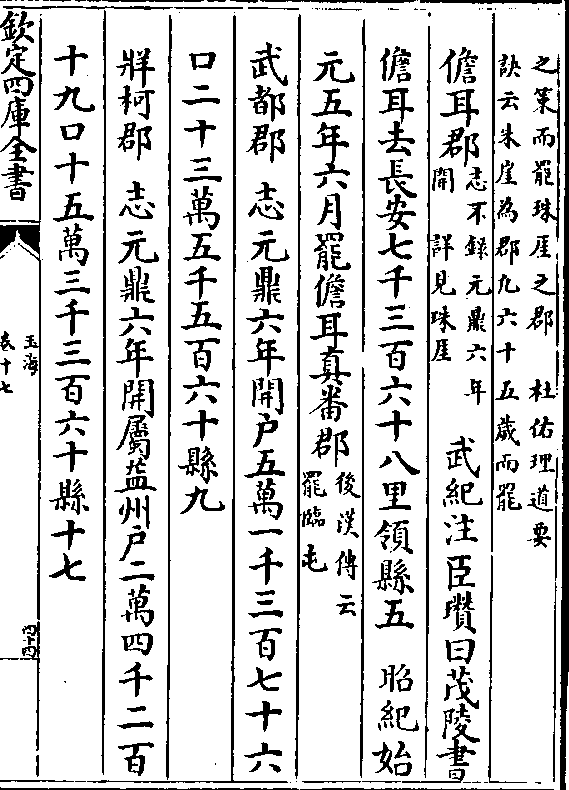 之策而罷珠厓之郡　杜佑理道要
訣云朱崖為郡九六十五歲而罷
儋耳郡　志不錄元鼎六年
開　詳見珠厓　武紀注臣瓚曰茂陵書
儋耳去長安七千三百六十八里領縣五　昭紀始
元五年六月罷儋耳真番郡　後漢傳云
罷臨屯
武都郡　志元鼎六年開户五萬一千三百七十六
口二十三萬五千五百六十縣九
牂柯郡　志元鼎六年開屬益州户二萬四千二百
十九口十五萬三千三百六十縣十七
欽定四庫全書
玉海
卷十七
四十四